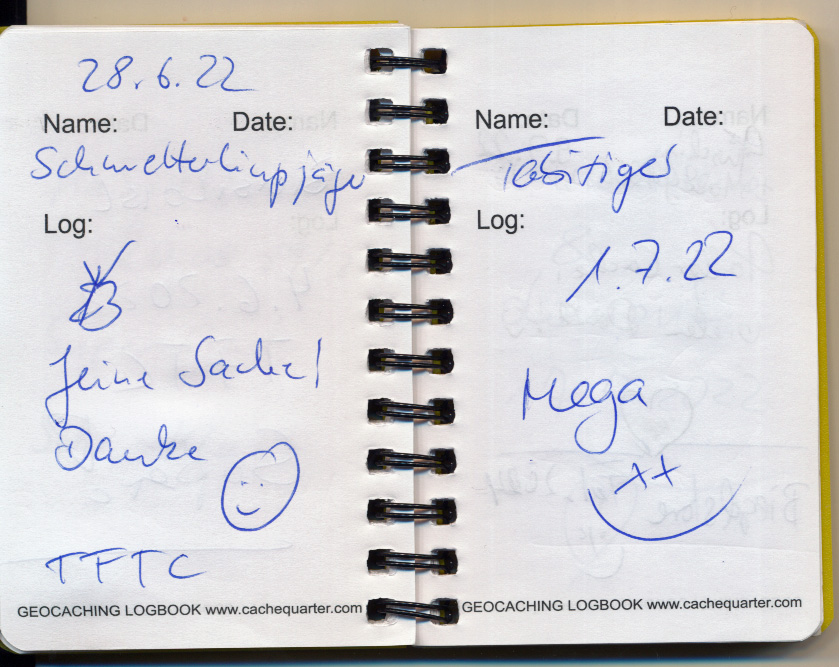 28.6.22
Name: Date:
Schmetterlingsjäger
Log:
Feine Sache!
Danke
TFTC
GEOCACHING LOGBOOK www.cachequarter.com
Name: Date:
Log:
1.7.22
Mega
GEOCACHING LOGBOOK www.cachequarter.com